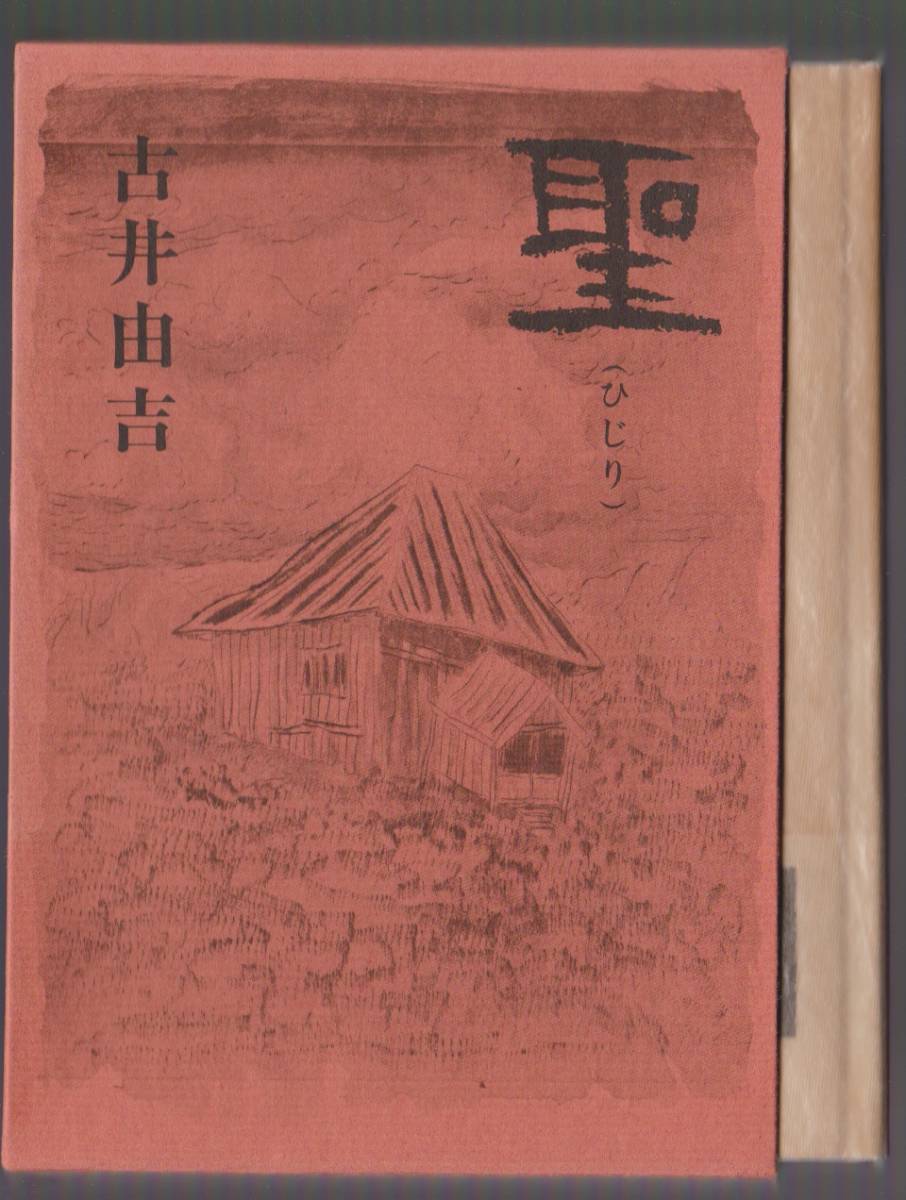 聖
（ひじり）
古井由吉